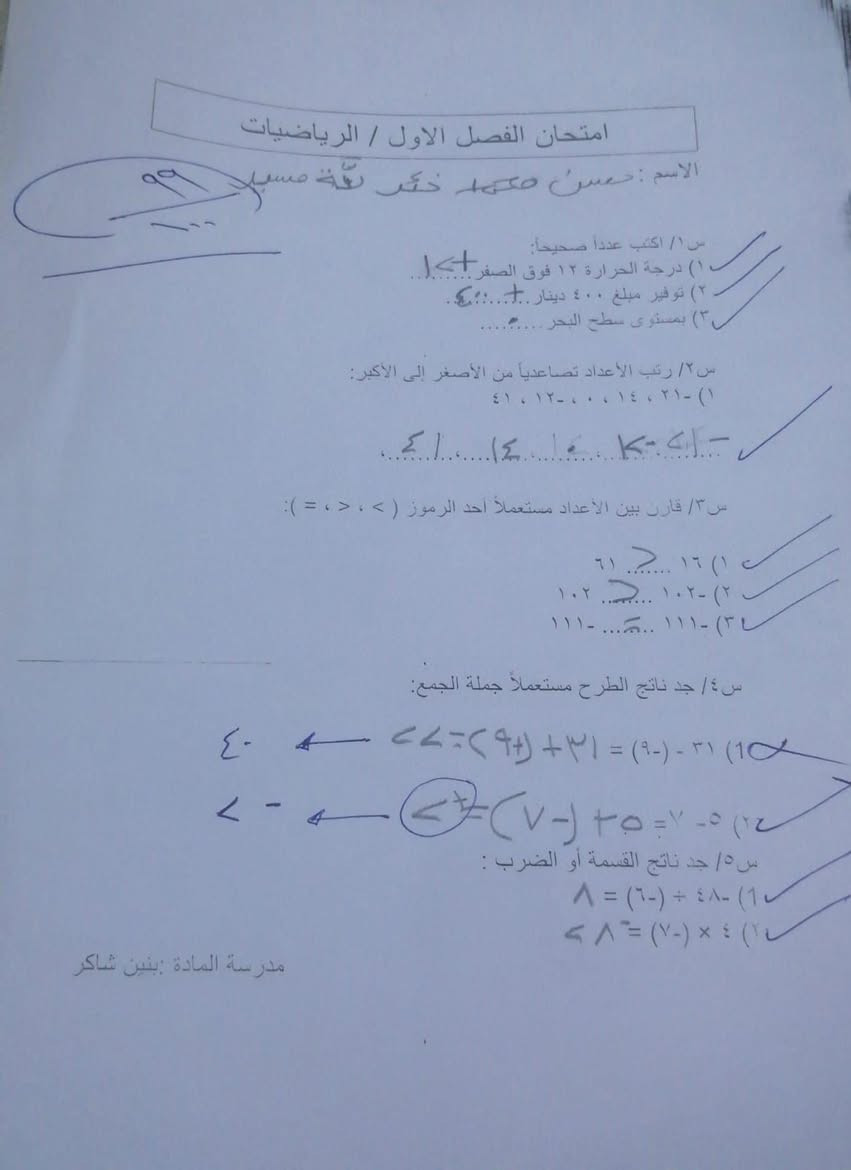 امتحان الفصل الاول / الرياضيات
الاسم : حسن محمد
٩٩
١٠٠
س١/ اكتب عدداً صحيحاً:
١) درجة الحرارة ١٢ فوق الصفر +١٢
٢) توفير مبلغ ٤٠٠ دينار +٤٠٠
٣) بمستوى سطح البحر ٠
س٢/ رتب الأعداد تصاعدياً من الأصغر إلى الأكبر:
١) -٢١ ، ١٤ ، ٠ ، -١٢ ، ٤١
-٢١ -١٢ ٠ ١٤ ٤١
س٣/ قارن بين الأعداد مستعملاً أحد الرموز ( > ، < ، = ):
١) ١٦ > ٦١
٢) -١٠٢ > ١٠٢
٣) -١١١ = -١١١
س٤/ جد ناتج الطرح مستعملاً جملة الجمع:
١) ٣١ - (-٩) = ٣١ + (+٩) = ٢٢ ← ٤٠
٢) ٥ - ٧ = ٥ + (-٧) = +٢ ← -٢
س٥/ جد ناتج القسمة أو الضرب :
١) -٤٨ ÷ (-٦) = ٨
٢) ٤ × (-٧) = -٢٨
مدرسة المادة :بنين شاكر